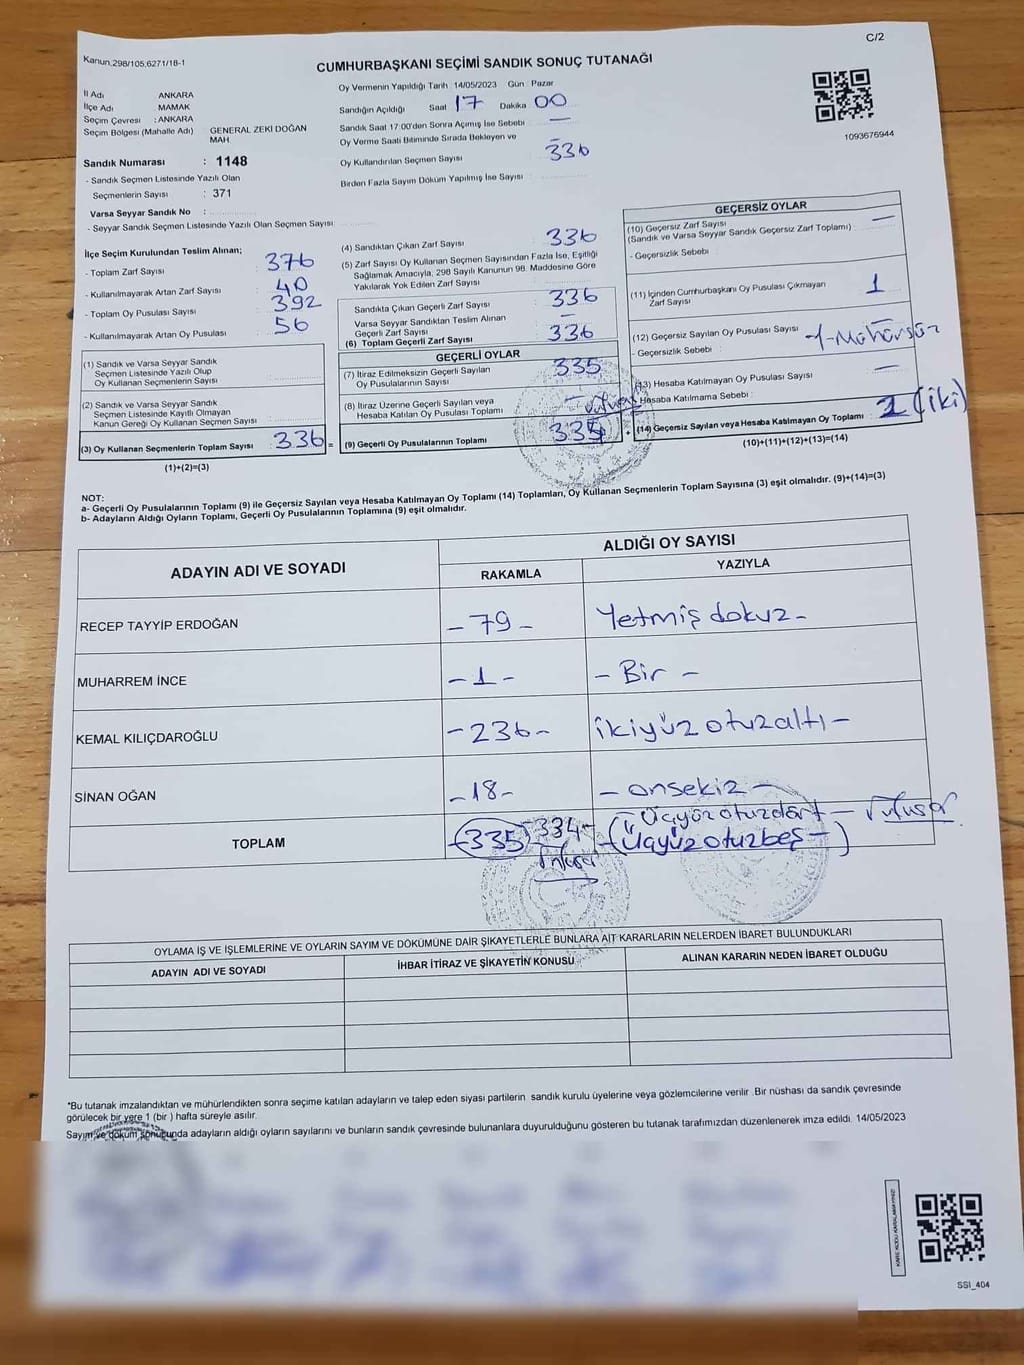 C/2
Kanun.298/105,6271/18-1
CUMHURBAŞKANI SEÇİMİ SANDIK SONUÇ TUTANAĞI
İl Adı ANKARA
İlçe Adı MAMAK
Seçim Çevresi : ANKARA
Seçim Bölgesi (Mahalle Adı) GENERAL ZEKİ DOĞAN
MAH
Sandık Numarası : 1148
- Sandık Seçmen Listesinde Yazılı Olan
Seçmenlerin Sayısı : 371
Varsa Seyyar Sandık No :
- Seyyar Sandık Seçmen Listesinde Yazılı Olan Seçmen Sayısı
Oy Vermenin Yapıldığı Tarih 14/05/2023 Gün Pazar
Sandığın Açıldığı Saat 17 Dakika 00
Sandık Saat 17:00'den Sonra Açımış İse Sebebi —
Oy Verme Saati Bitiminde Sırada Bekleyen ve
Oy Kullandırılan Seçmen Sayısı 336
Birden Fazla Sayım Döküm Yapılmış İse Sayısı
1093676944
İlçe Seçim Kurulundan Teslim Alınan;
- Toplam Zarf Sayısı : 376
- Kullanılmayarak Artan Zarf Sayısı : 40
- Toplam Oy Pusulası Sayısı : 392
- Kullanılmayarak Artan Oy Pusulası : 56
(1) Sandık ve Varsa Seyyar Sandık
Seçmen Listesinde Yazılı Olup
Oy Kullanan Seçmenlerin Sayısı
(2) Sandık ve Varsa Seyyar Sandık
Seçmen Listesinde Kayıtlı Olmayan
Kanun Gereği Oy Kullanan Seçmen Sayısı
(3) Oy Kullanan Seçmenlerin Toplam Sayısı : 336 =
(1)+(2)=(3)
(4) Sandıktan Çıkan Zarf Sayısı : 336
(5) Zarf Sayısı Oy Kullanan Seçmen Sayısından Fazla İse, Eşitliği
Sağlamak Amacıyla, 298 Sayılı Kanunun 98. Maddesine Göre
Yakılarak Yok Edilen Zarf Sayısı
Sandıkta Çıkan Geçerli Zarf Sayısı : 336
Varsa Seyyar Sandıktan Teslim Alınan
Geçerli Zarf Sayısı : —
(6) Toplam Geçerli Zarf Sayısı : 336
GEÇERLİ OYLAR
(7) İtiraz Edilmeksizin Geçerli Sayılan
Oy Pusulalarının Sayısı : 335
(8) İtiraz Üzerine Geçerli Sayılan veya
Hesaba Katılan Oy Pusulası Toplamı : —
(9) Geçerli Oy Pusulalarının Toplamı : 334 +
GEÇERSİZ OYLAR
(10) Geçersiz Zarf Sayısı —
(Sandık ve Varsa Seyyar Sandık Geçersiz Zarf Toplamı) :
- Geçersizlik Sebebi
(11) İçinden Cumhurbaşkanı Oy Pusulası Çıkmayan
Zarf Sayısı : 1
(12) Geçersiz Sayılan Oy Pusulası Sayısı : 1-Mühürsüz
- Geçersizlik Sebebi :
(13) Hesaba Katılmayan Oy Pusulası Sayısı : —
Hesaba Katılmama Sebebi :
(14) Geçersiz Sayılan veya Hesaba Katılmayan Oy Toplamı : 2 (iki)
(10)+(11)+(12)+(13)=(14)
NOT:
a- Geçerli Oy Pusulalarının Toplamı (9) ile Geçersiz Sayılan veya Hesaba Katılmayan Oy Toplamı (14) Toplamları, Oy Kullanan Seçmenlerin Toplam Sayısına (3) eşit olmalıdır. (9)+(14)=(3)
b- Adayların Aldığı Oyların Toplamı, Geçerli Oy Pusulalarının Toplamına (9) eşit olmalıdır.
ADAYIN ADI VE SOYADI
ALDIĞI OY SAYISI
RAKAMLA YAZIYLA
RECEP TAYYİP ERDOĞAN - 79 - Yetmiş dokuz -
MUHARREM İNCE - 1 - - Bir -
KEMAL KILIÇDAROĞLU - 236 - ikiyüz otuzaltı -
SİNAN OĞAN - 18 - - onsekiz -
TOPLAM -335- 334- Üçyüzotuzdört -
-(Üçyüzotuzbeş-)
OYLAMA İŞ VE İŞLEMLERİNE VE OYLARIN SAYIM VE DÖKÜMÜNE DAİR ŞİKAYETLERLE BUNLARA AİT KARARLARIN NELERDEN İBARET BULUNDUKLARI
ADAYIN ADI VE SOYADI İHBAR İTİRAZ VE ŞİKAYETİN KONUSU ALINAN KARARIN NEDEN İBARET OLDUĞU
*Bu tutanak imzalandıktan ve mühürlendikten sonra seçime katılan adayların ve talep eden siyasi partilerin sandık kurulu üyelerine veya gözlemcilerine verilir. Bir nüshası da sandık çevresinde
görülecek bir yere 1 (bir ) hafta süreyle asılır.
Sayım ve döküm sonucunda adayların aldığı oyların sayılarını ve bunların sandık çevresinde bulunanlara duyurulduğunu gösteren bu tutanak tarafımızdan düzenlenerek imza edildi. 14/05/2023
KARE KODU KARALAMAYINIZ!
SSI_404